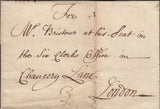 For
Mr. Bristows at his Seat in
the Six Clerks Office in
Chancery Lane
London